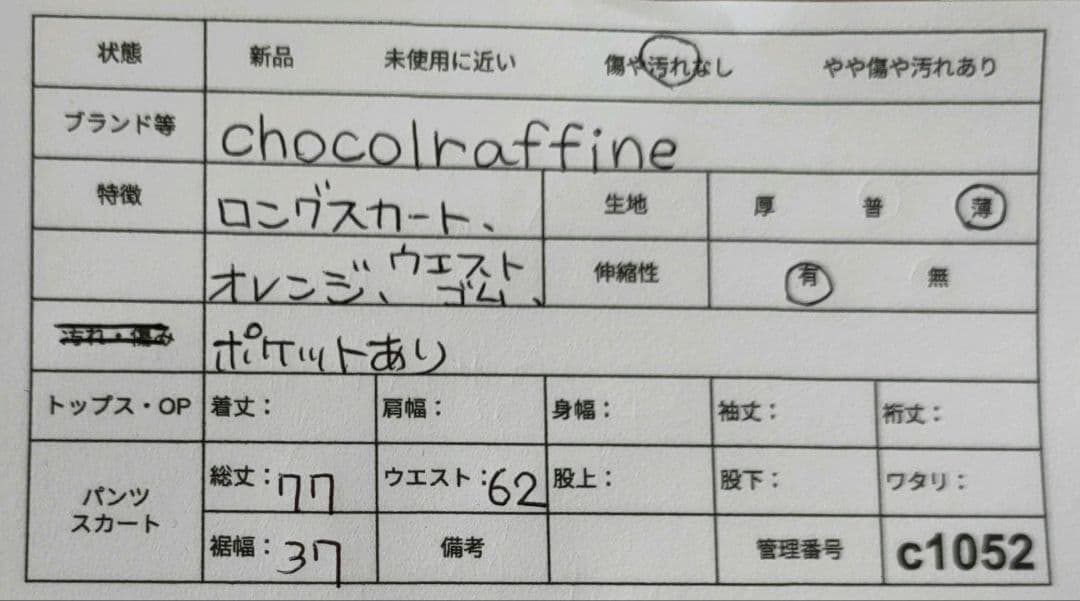 状態 新品 未使用に近い 傷や汚れなし やや傷や汚れあり
ブランド等 chocolraffine
特徴 ロングスカート、 生地 厚 普 薄
オレンジ、ウエストゴム、 伸縮性 有 無
汚れ・傷み ポケットあり
トップス・OP 着丈: 肩幅: 身幅: 袖丈: 裄丈:
パンツ スカート 総丈:77 ウエスト:62 股上: 股下: ワタリ:
裾幅:37 備考 管理番号 c1052